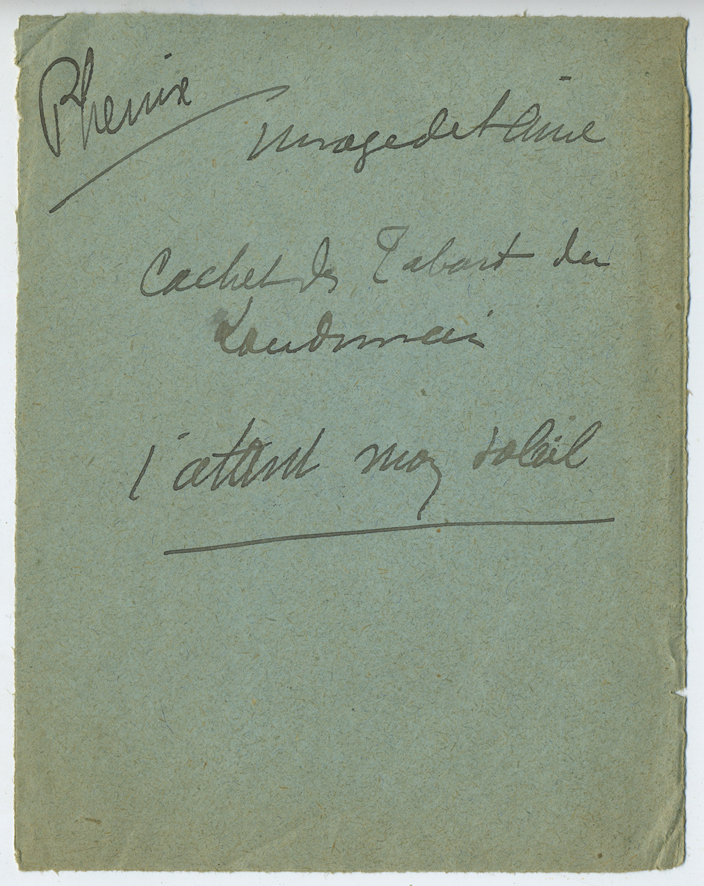 Phenix
image de l'âme
Cachet des Tabart du
Loudunais
j'attend mon soleil